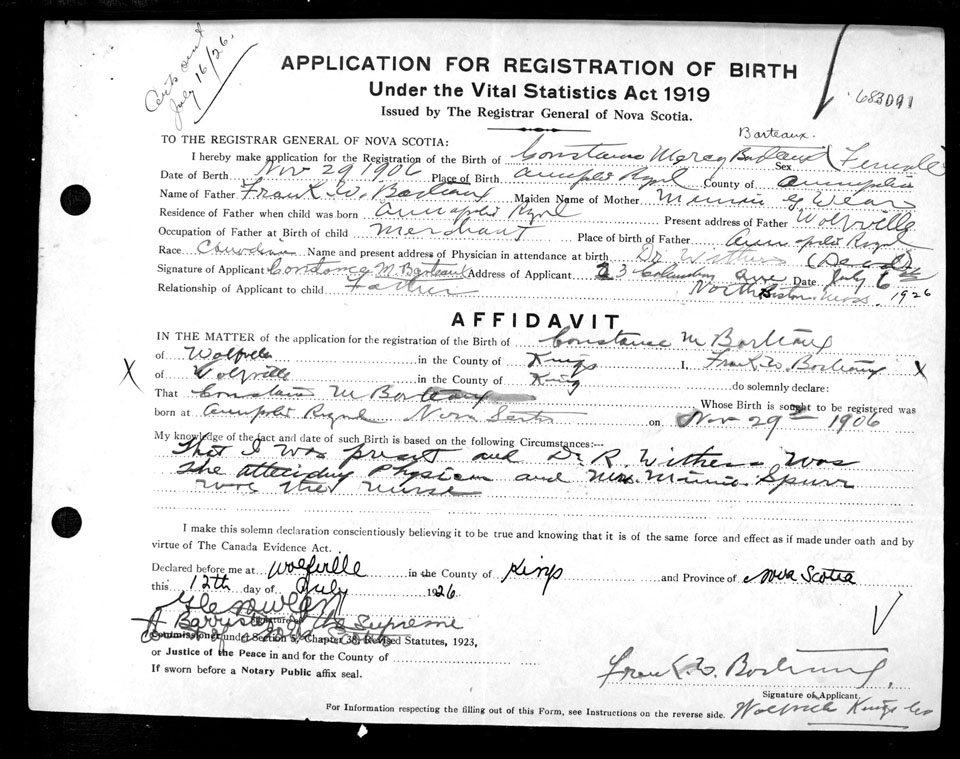 Certs sent
July 16/26.
APPLICATION FOR REGISTRATION OF BIRTH
Under the Vital Statistics Act 1919
Issued by The Registrar General of Nova Scotia.
683091
Barteaux.
TO THE REGISTRAR GENERAL OF NOVA SCOTIA:
I hereby make application for the Registration of the Birth of Constance Mercy Barteaux Sex Female
Date of Birth Nov 29 1906 Place of Birth Annapolis Royal County of Annapolis
Name of Father Frank W. Barteaux Maiden Name of Mother Minnie G Wear
Residence of Father when child was born Annapolis Royal Present address of Father Wolfville
Occupation of Father at Birth of child Merchant Place of birth of Father Annapolis Royal
Race Canadian Name and present address of Physician in attendance at birth Dr Withers (Dead)
Signature of Applicant Constance M. Barteaux Address of Applicant 23 Columbia Ave Date July 6th
Relationship of Applicant to child Father North Boston Mass. 1926
AFFIDAVIT
IN THE MATTER of the application for the registration of the Birth of Constance M Barteaux
of Wolfville in the County of Kings I, Frank W. Barteaux
X of Wolfville in the County of Kings do solemnly declare: X
That Constance M Barteaux Whose Birth is sought to be registered was
born at Annapolis Royal Nova Scotia on Nov 29th 1906
My knowledge of the fact and date of such Birth is based on the following Circumstances:---
That I was present and Dr. R. Withers was
the attending Physician and Mrs. Minnie Spurr
was the nurse
I make this solemn declaration conscientiously believing it to be true and knowing that it is of the same force and effect as if made under oath and by
virtue of The Canada Evidence Act.
Declared before me at Wolfville in the County of Kings and Province of Nova Scotia
this 12th day of July 1926.
Signature of
A Barrister of the Supreme
Commissioner under Section 5, Chapter 38, Revised Statutes, 1923,
or Justice of the Peace in and for the County of
If sworn before a Notary Public affix seal.
Frank W. Barteaux
Signature of Applicant.
For Information respecting the filling out of this Form, see Instructions on the reverse side. Wolfville Kings Co